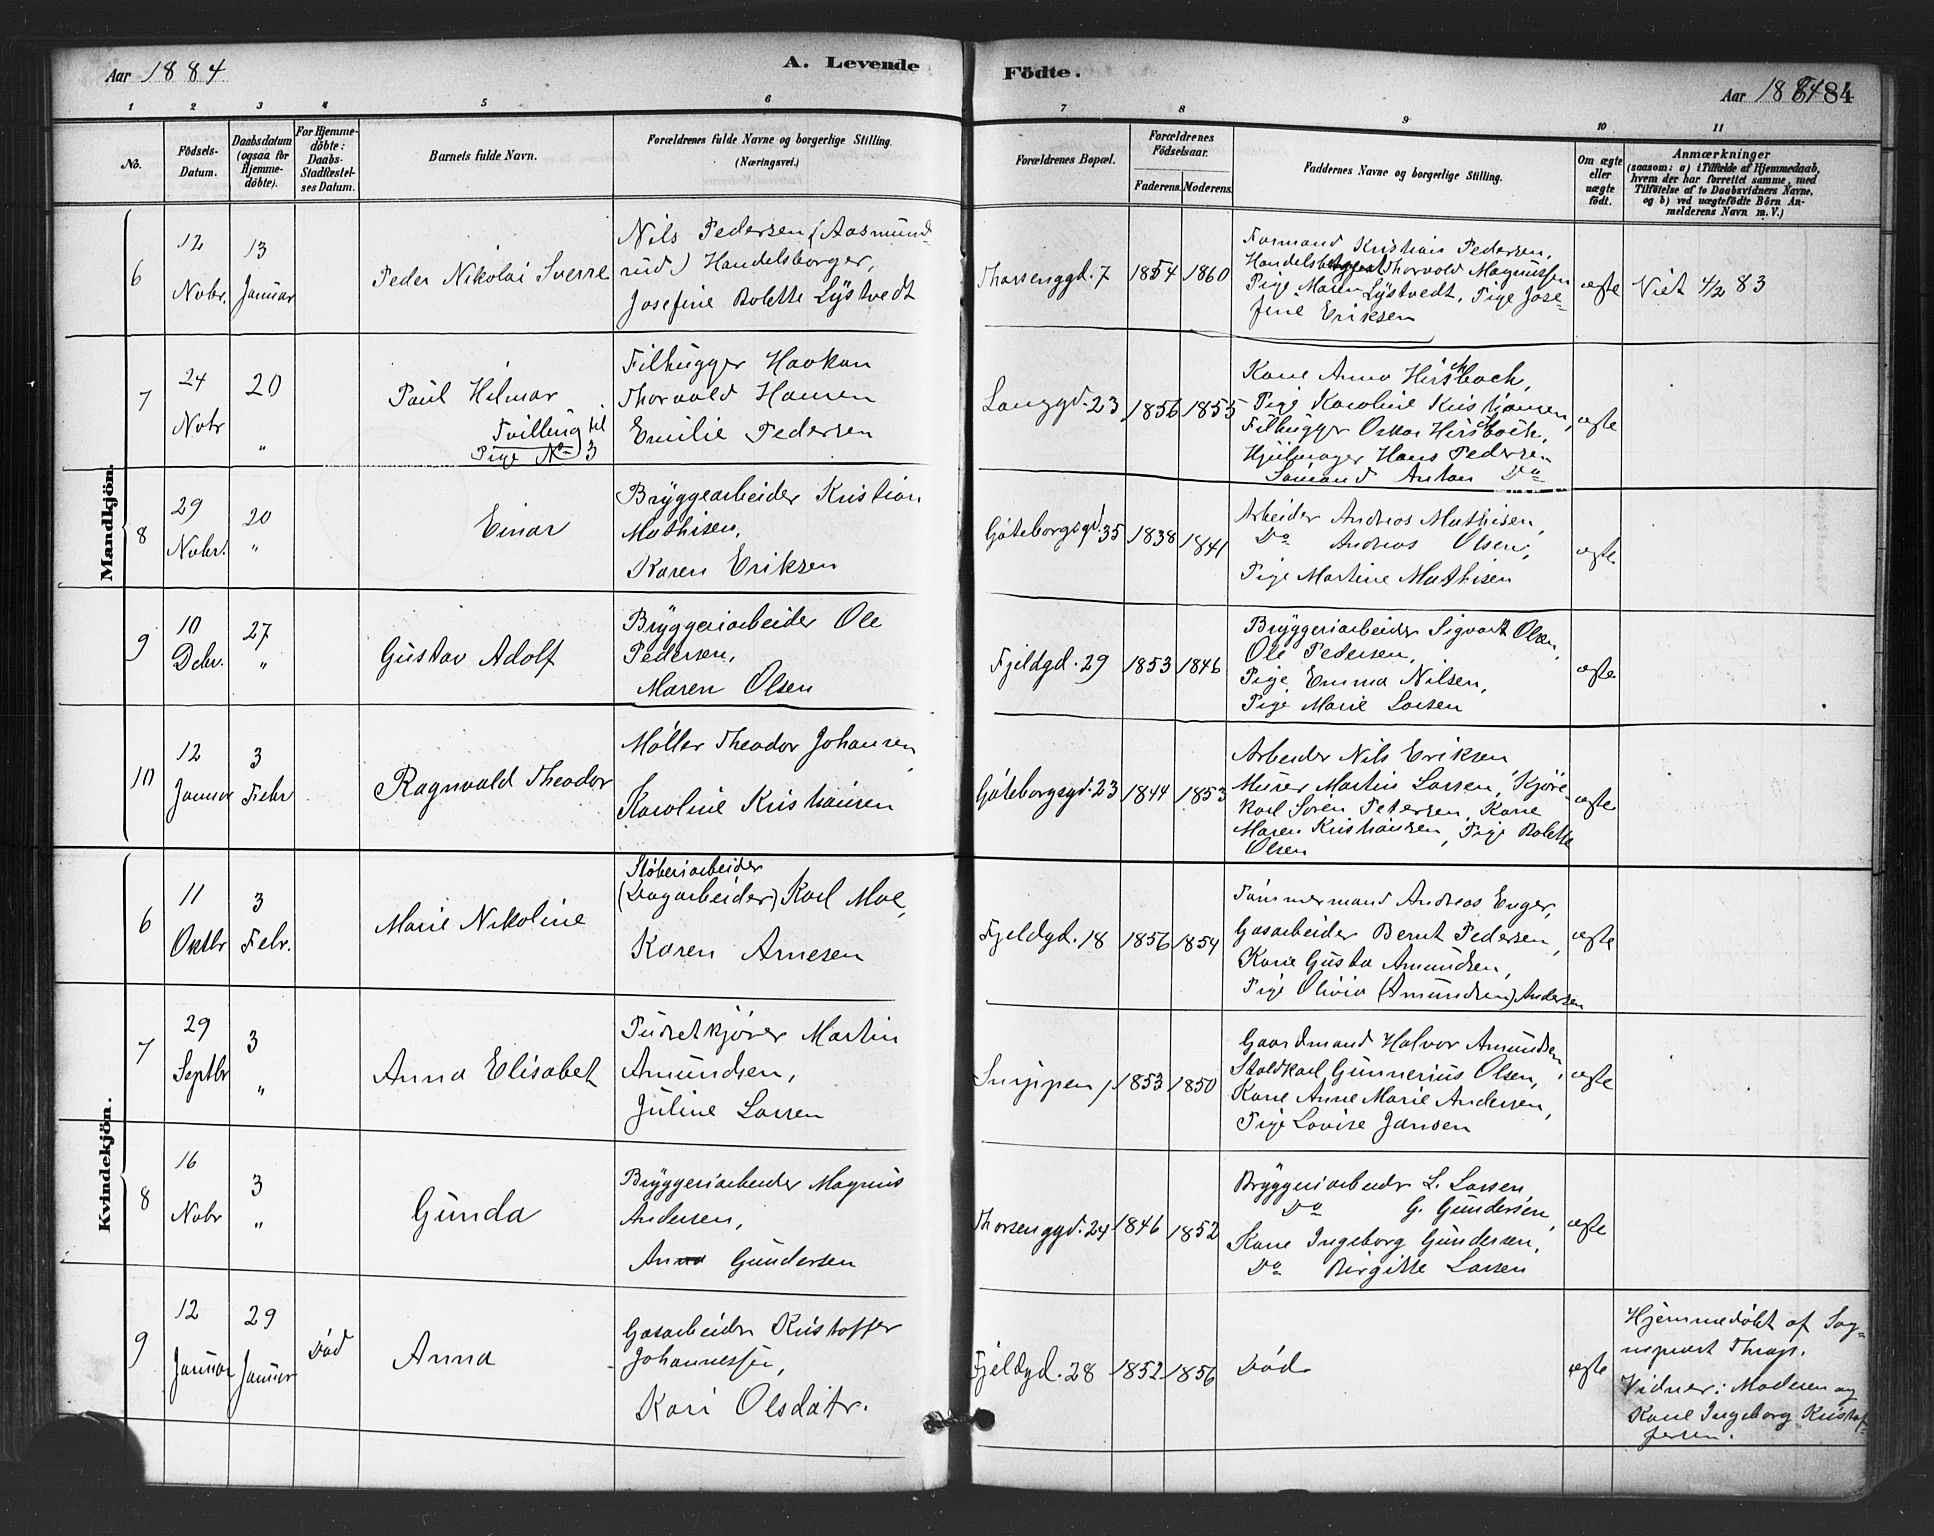 Aar 1884
A. Levende
Födte.
Aar 1884
84
1 2 3 4 5 6 7 8 9 10 11
No.
Födsels-
Datum.
Daabsdatum
(ogsaa for
Hjemme-
döbte).
For Hjemme-
döbte:
Daabs-
Stadfæstel-
ses Datum.
Barnets fulde Navn.
Forældrenes fulde Navne og borgerlige Stilling.
(Næringsvei.)
Forældrenes Bopæl.
Forældrenes
Födselsaar.
Faderens. Moderens.
Faddernes Navne og borgerlige Stilling.
Om ægte
eller
uægte
födt.
Anmærkninger
(saasom: a) i Tilfælde af Hjemmedaab,
hvem der har forrettet samme, med
Tilföielse af to Daabsvidners Navne,
og b) ved uægtefödte Börn An-
melderens Navn m. V.)
Mandkjön.
6
12
Novbr.
13
Januar
Peder Nikolai Sverre
Nils Pedersen (Aasmund-
rud) Handelsborger,
Josefine Bolette Lystvedt
Thorsenggd. 7
1854
1860
Formand Kristian Pedersen,
Thorvald Magnussen
Pige Maren Lystvedt, Pige Jose-
fine Eriksen
ægte
Viet 4/2 83
7
24
Novbr
20
"
Paul Hilmar
Tvilling til
Pige No 3
Filhugger Haakon
Thorvald Hansen
Emilie Pedersen
Langgd. 23
1856
1855
Kone Anna Hirschboch,
Pige Karoline Kristiansen,
Filhugger Oskar Hirschboch,
Hjulmager Hans Pedersen
Sömand Anton Do
ægte
8
29
Novbr.
20
"
Einar
Bryggearbeider Kristian
Mathisen,
Karen Eriksen
Göteborgsgd. 35
1838
1841
Arbeider Andreas Mathisen,
Do Andreas Olsen,
Pige Martine Mathisen
ægte
9
10
Debr.
27
"
Gustav Adolf
Bryggeriarbeider Ole
Pedersen,
Maren Olsen
Fjeldgd. 29
1853
1846
Bryggeriarbeider Sigvart Olsen,
Ole Pedersen,
Pige Emma Nilsen,
Pige Marie Larsen
ægte
10
12
Januar
3
Febr
Ragnvald Theodor
Møller Theodor Johansen,
Karoline Kristiansen
Göteborgsgd. 23
1844
1853
Arbeider Nils Eriksen
Murer Martin Larsen, Kjöre-
karl Sören Petersen, Kone
Maren Kristiansen, Pige Bolette
Olsen
ægte
Kvindekjön.
6
11
Oktbr
3
Febr.
Marie Nikoline
Støberiarbeider
(Dagarbeider) Karl Moe,
Karen Arnesen
Fjeldgd. 18
1856
1854
Tømmermand Andreas Enger,
Gasarbeider Bernt Pedersen,
Kone Gusta Amundsen,
Pige Olivia (Amundsen) Andersen
ægte
7
29
Septbr
3
"
Anna Elisabet
Pudretkjører Martin
Amundsen,
Juline Larsen
1853
1850
Gaardmand Halvor Amundsen,
Staldkarl Gunnerius Olsen,
Kone Anne Marie Andersen,
Pige Lovise Jansen
ægte
8
16
Novbr
3
"
Gunda
Bryggeriarbeider Magnus
Andersen,
Gundersen
Thorsenggd. 24
1846
1852
Bryggeriarbeider L. Larsen
Do G. Gundersen,
Kone Ingeborg Gundersen,
Do Birgitte Larsen
ægte
9
12
Januar
29
Januar
Død
Anna
Gasarbeider Kristoffer
Johannessen,
Kari Olsdatr.
Fjeldgd. 28
1852
1856
Død
ægte
Hjemmedøbt af Sog-
nepræst Thrap.
Vidner: Moderen og
Kone Ingeborg Kristof-
fersen.